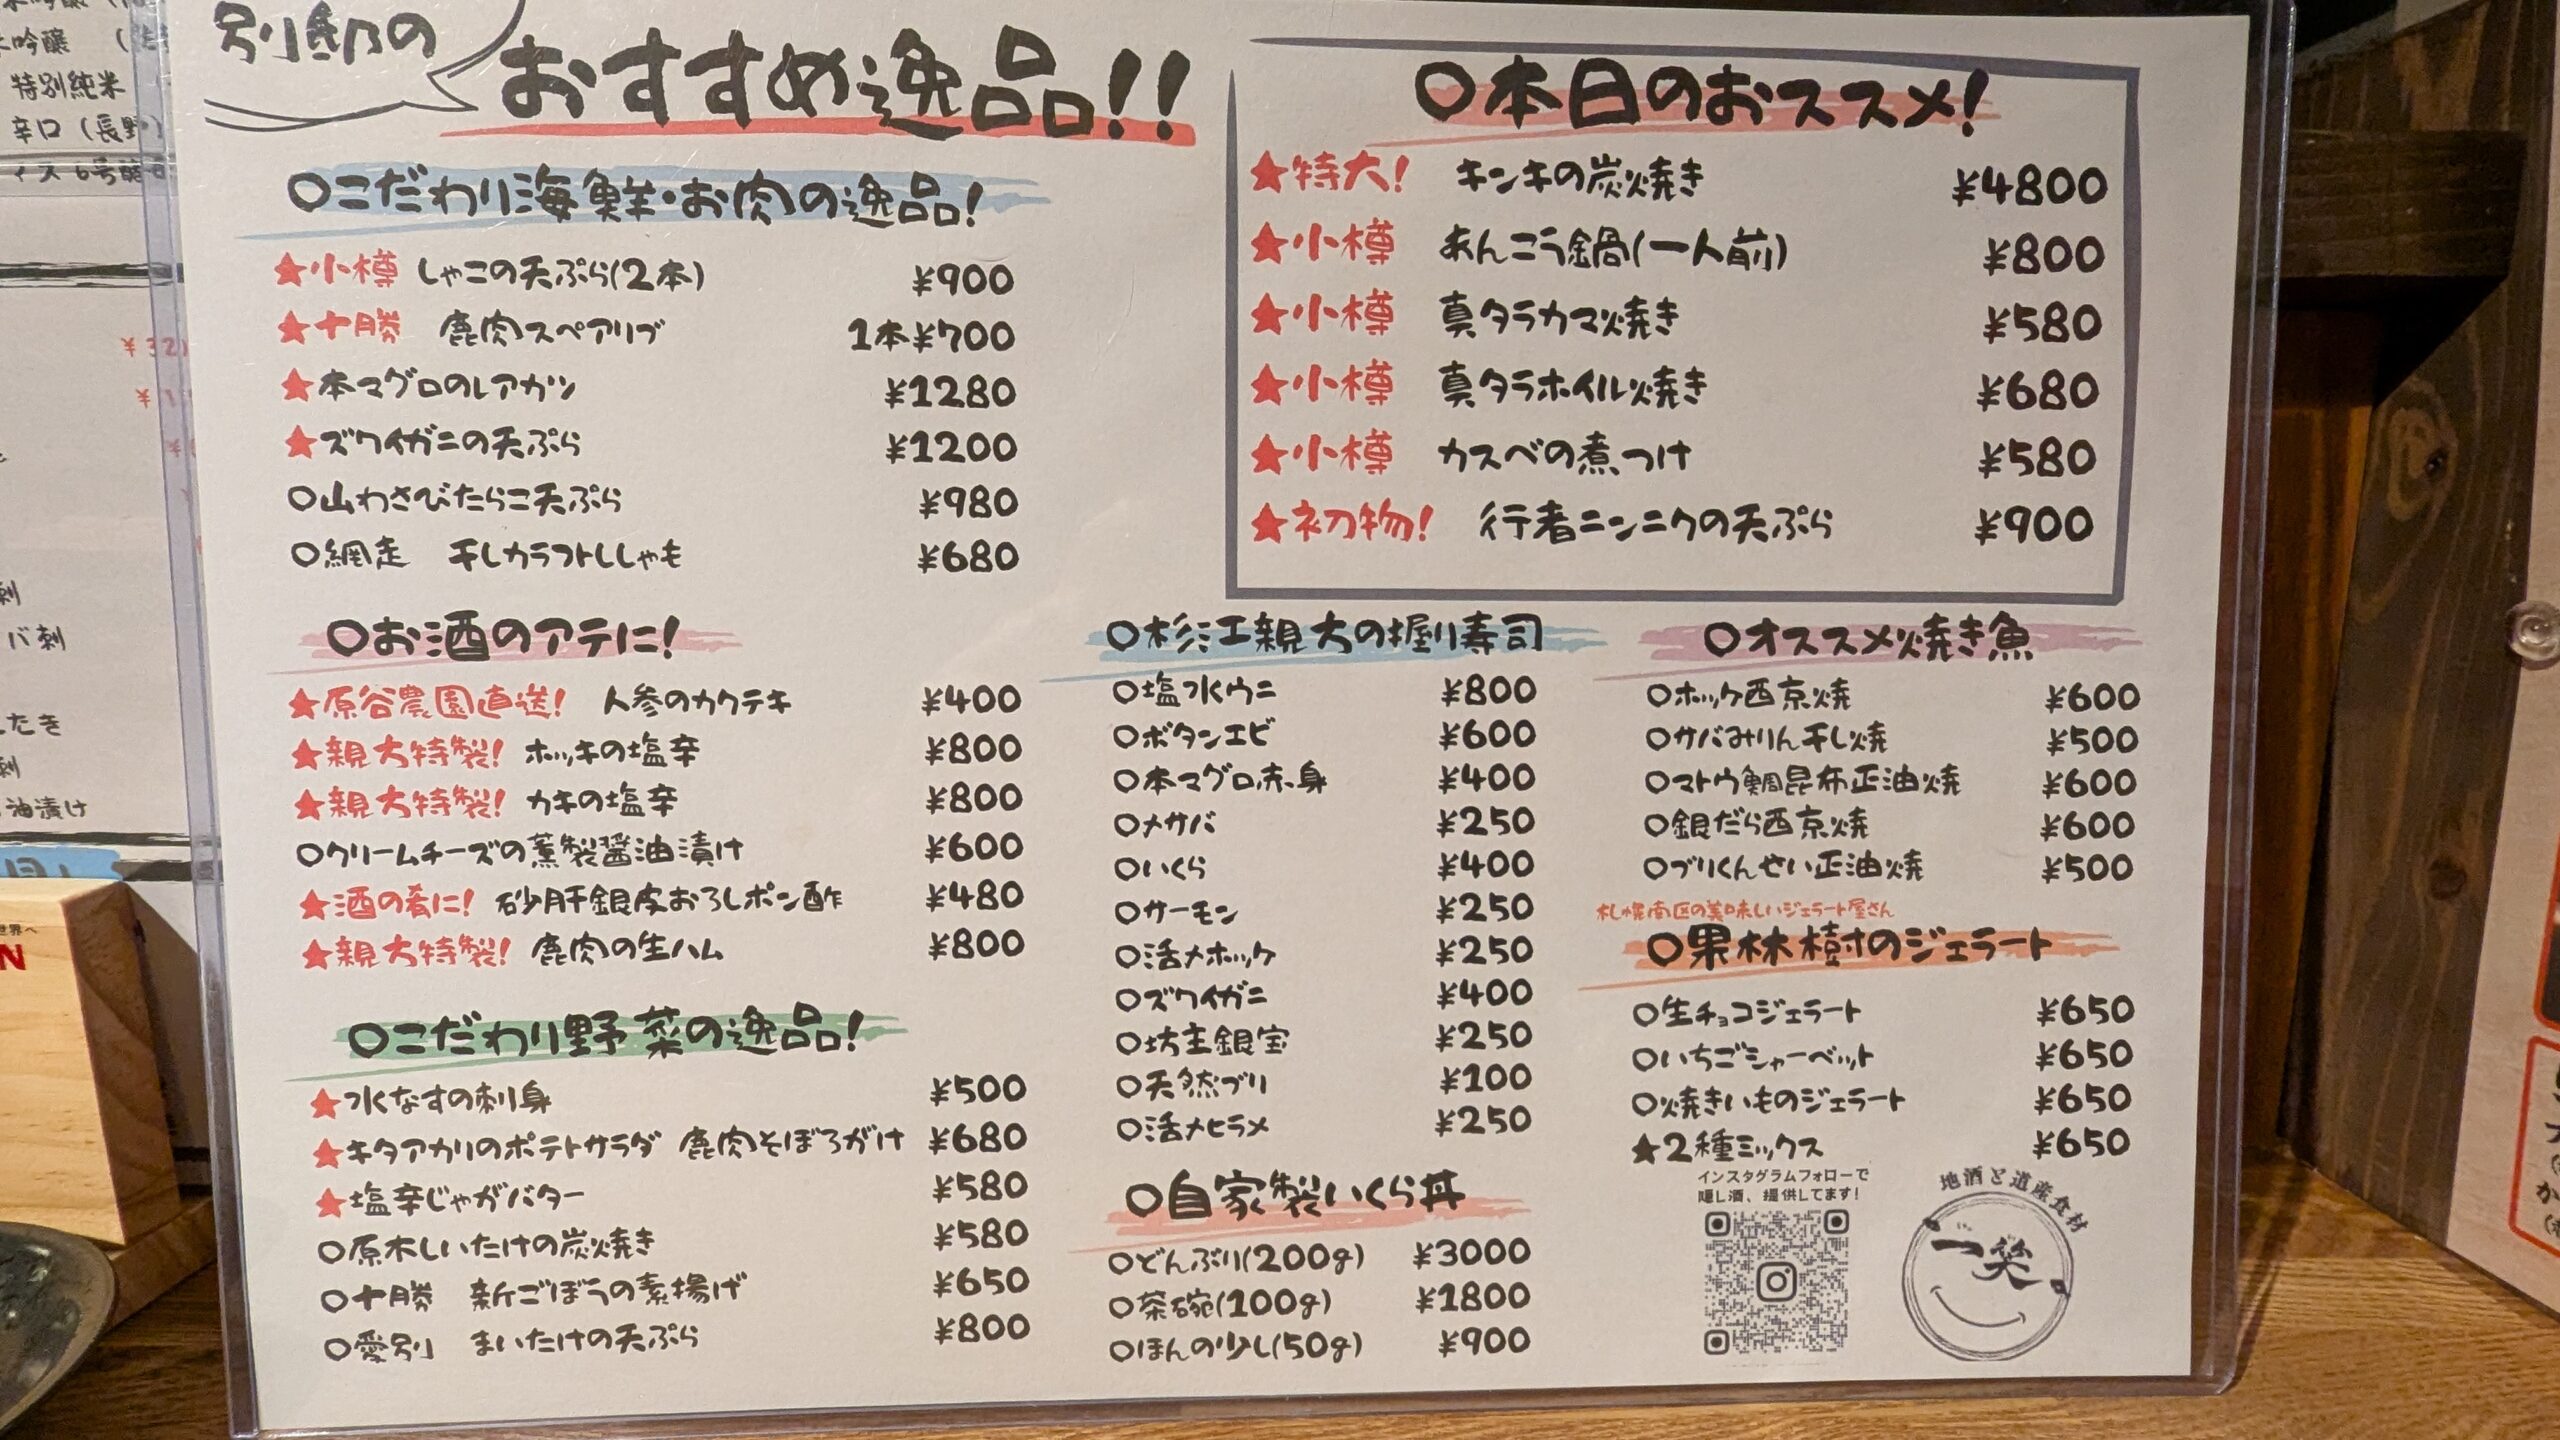 別邸の
おすすめ逸品!!
○こだわり海鮮・お肉の逸品!
★小樽 しゃこの天ぷら(2本) ¥900
★十勝 鹿肉スペアリブ 1本¥700
★本マグロのレアカツ ¥1280
★ズワイガニの天ぷら ¥1200
○山わさびたらこ天ぷら ¥980
○網走 干しカラフトししゃも ¥680
○本日のおススメ!
★特大! キンキの炭焼き ¥4800
★小樽 あんこう鍋(一人前) ¥800
★小樽 真タラカマ焼き ¥580
★小樽 真タラホイル焼き ¥680
★小樽 カスベの煮つけ ¥580
★初物! 行者ニンニクの天ぷら ¥900
○お酒のアテに!
★原谷農園直送! 人参のカクテキ ¥400
★親方特製! ホッキの塩辛 ¥800
★親方特製! カキの塩辛 ¥800
○クリームチーズの薫製醤油漬け ¥600
★酒の肴に! 砂肝銀皮おろしポン酢 ¥480
★親方特製! 鹿肉の生ハム ¥800
○こだわり野菜の逸品!
★水なすの刺身 ¥500
★キタアカリのポテトサラダ 鹿肉そぼろがけ ¥680
★塩辛じゃがバター ¥580
○原木しいたけの炭焼き ¥580
○十勝 新ごぼうの素揚げ ¥650
○愛別 まいたけの天ぷら ¥800
○杉江親方の握り寿司
○塩水ウニ ¥800
○ボタンエビ ¥600
○本マグロ赤身 ¥400
○メサバ ¥250
○いくら ¥400
○サーモン ¥250
○活〆ホッケ ¥250
○ズワイガニ ¥400
○坊主銀宝 ¥250
○天然ブリ ¥100
○活〆ヒラメ ¥250
○自家製いくら丼
○どんぶり(200g) ¥3000
○茶碗(100g) ¥1800
○ほんの少し(50g) ¥900
○オススメ焼き魚
○ホッケ西京焼 ¥600
○サバみりん干し焼 ¥500
○マトウ鯛昆布正油焼 ¥600
○銀だら西京焼 ¥600
○ブリくんせい正油焼 ¥500
札幌南区の美味しいジェラート屋さん
○果林樹のジェラート
○生チョコジェラート ¥650
○いちごシャーベット ¥650
○焼きいものジェラート ¥650
★2種ミックス ¥650
インスタグラムフォローで
隠し酒、提供してます!
地酒と道産食材
一笑
特別純米
バ刺
油漬け